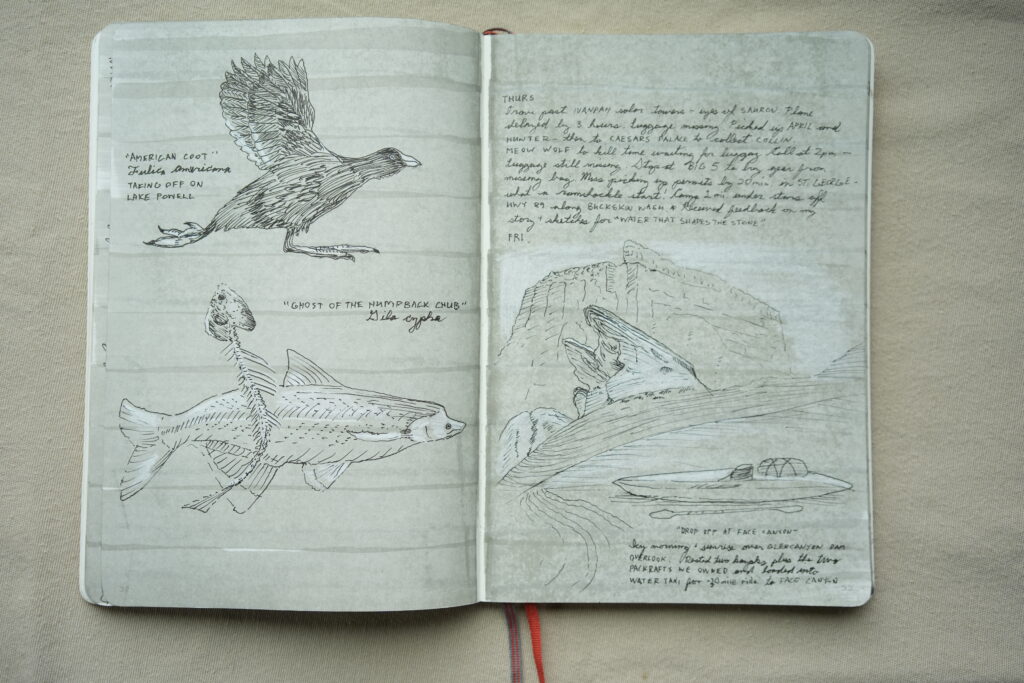 "AMERICAN COOT"
Fulica americana
TAKING OFF ON
LAKE POWELL
"GHOST OF THE HUMPBACK CHUB"
Gila cypha
THURS
Drove past IVANPAH solar towers - eyes of SAURON Plane
delayed by 3 hours. Luggage missing. Picked up APRIL and
HUNTER - then to CAESARS PALACE to collect COLLIN,
MEOW WOLF to kill time waiting for luggage. Call at 2pm -
Luggage still missing. Stops at BIG 5 to buy gear from
missing bag. Miss picking up permits by 20 min in ST. GEORGE -
what a ramshackle start! Camp 2 mi under stars off
HWY 89 along BUCKSKIN WASH & Received feedback on my
story + sketches for "WATER THAT SHAPES THE STONE"
FRI.
"DROP OFF AT FACE CANYON"
Icy morning + sunrise over GLEN CANYON DAM
OVERLOOK. Rented two kayaks plus the two
PACKRAFTS WE OWNED and loaded into
WATER TAXI for ~30 mile ride to FACE CANYON